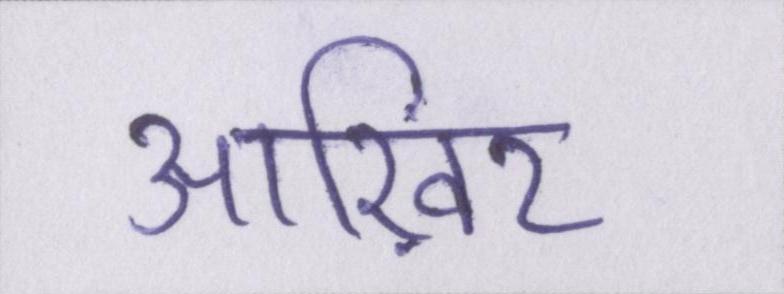 आख़िंर